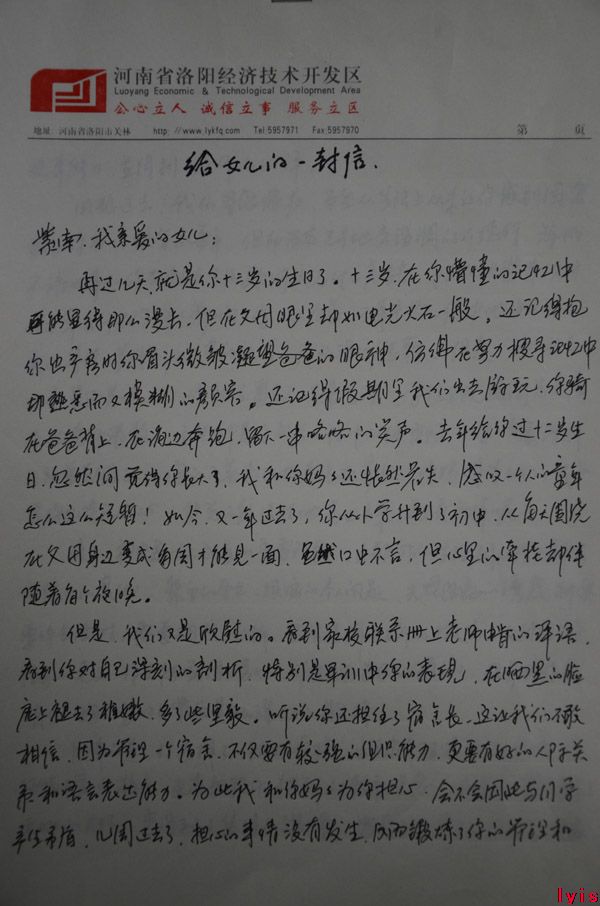 河南省洛阳经济技术开发区
Luoyang Economic & Technological Development Area
公心立人 诚信立事 服务立区
地址:河南省洛阳市关林 http://www.lykfq.com Tel:5957971 Fax:5957970 第 页
给女儿的一封信.
我亲爱的女儿:
再过几天就是你十三岁的生日了。十三岁,在你懵懂的记忆中
显得那么漫长,但在父母眼里却如电光火石一般。还记得抱
你出产房时你眉头微皱凝望爸爸的眼神,仿佛在努力搜寻记忆中
那熟悉而又模糊的颜容。还记得假期里我们出去游玩,你骑
在爸爸背上,在海边奔跑,留下一串咯咯的笑声。去年给你过十二岁生
日,忽然间觉得你长大了,我和你妈妈还怅然若失,感叹一个人的童年
怎么这么短暂!如今,又一年过去了,你从小学升到了初中,从每天围绕
在父母身边变成每周才能见一面,虽然口中不言,但心里的牵挂却伴
随着每个夜晚。
但是,我们又是欣慰的。看到家校联系册上老师中肯的评语,
看到你对自己深刻的剖析,特别是军训中你的表现,在晒黑的脸
庞上褪去了稚嫩,多了些坚毅。听说你还担任了宿舍长,这让我们不敢
相信,因为管理一个宿舍,不仅要有较强的组织能力,更要有好的人际关
系和语言表达能力。为此我和你妈妈为你担心,会不会因此与同学
产生矛盾,几周过去了,担心的事情没有发生,反而锻炼了你的管理和
lyis